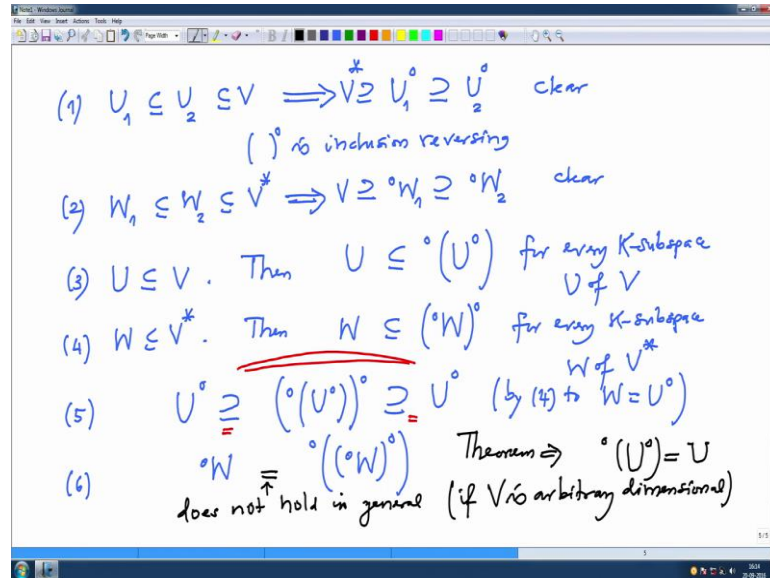 Note1 - Windows Journal
File Edit View Insert Actions Tools Help
Page Width
(1) U₁ ⊆ U₂ ⊆ V ⟹ V* ⊇ U₁⁰ ⊇ U₂⁰ clear
( )⁰ is inclusion reversing
(2) W₁ ⊆ W₂ ⊆ V* ⟹ V ⊇ ⁰W₁ ⊇ ⁰W₂ clear
(3) U ⊆ V. Then U ⊆ ⁰(U⁰) for every K-subspace
U of V
(4) W ⊆ V*. Then W ⊆ (⁰W)⁰ for every K-subspace
W of V*
(5) U⁰ ⊇ (⁰(U⁰))⁰ ⊇ U⁰ (by (4) to W = U⁰)
(6) ⁰W = ⁰((⁰W)⁰) Theorem ⇒ ⁰(U⁰) = U
↑
does not hold in general (if V is arbitrary dimensional)
5/5
5
16:14
20-09-2016